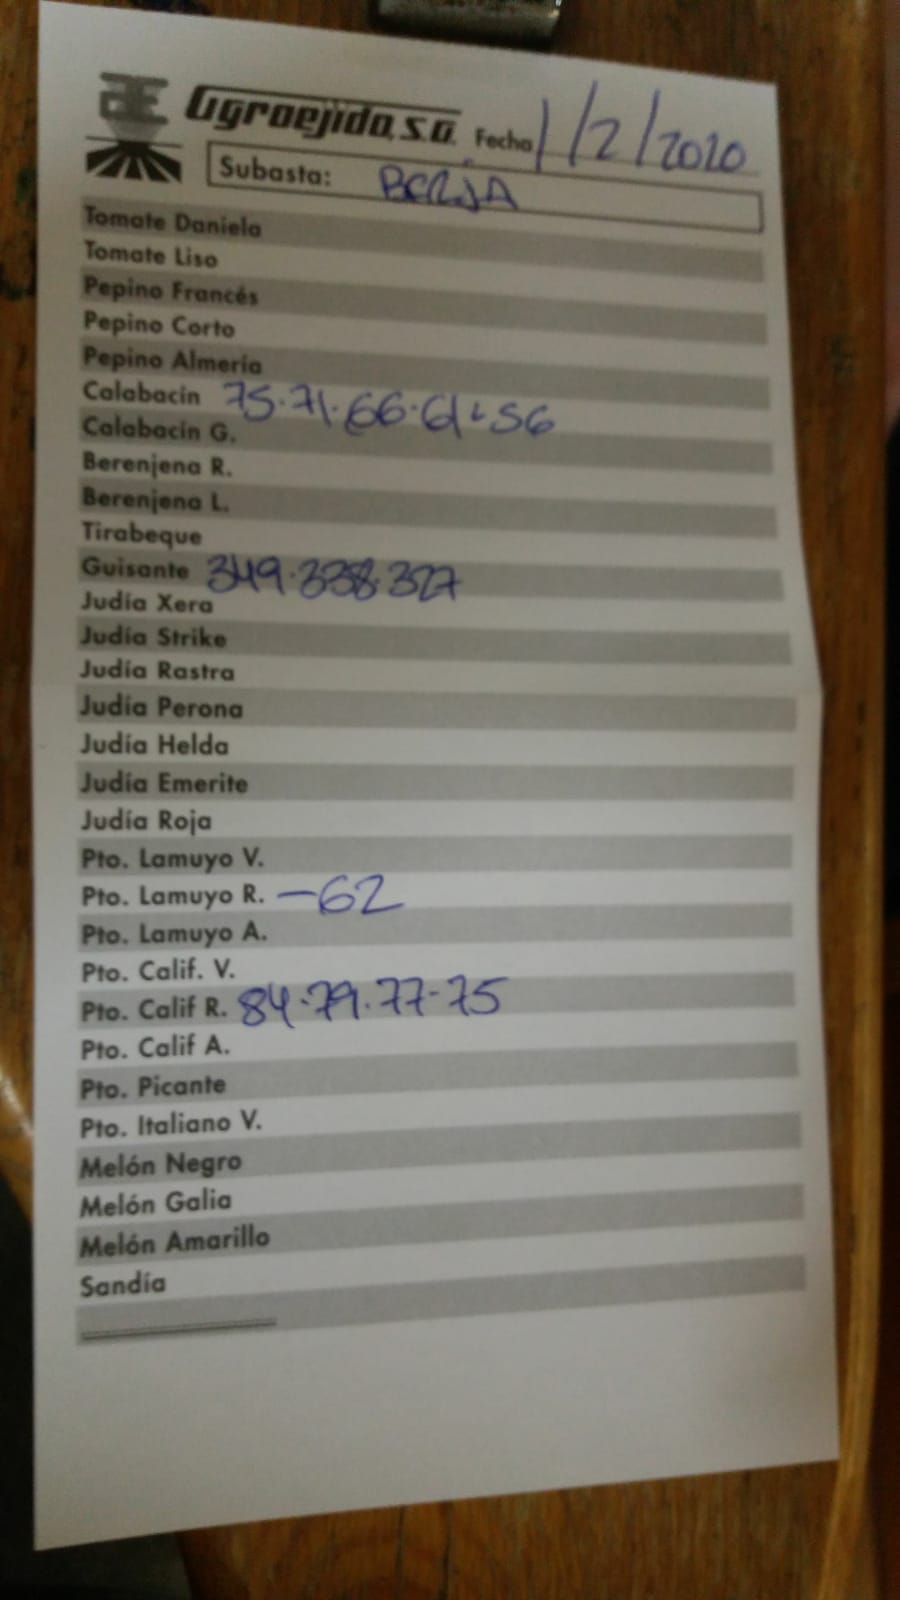 Agroejido, S.A. Fecha 1/2/2020
Subasta: BERJA
Tomate Daniela
Tomate Liso
Pepino Francés
Pepino Corto
Pepino Almería
Calabacín 75.71.66.61.56
Calabacín G.
Berenjena R.
Berenjena L.
Tirabeque
Guisante 349.338.327
Judía Xera
Judía Strike
Judía Rastra
Judía Perona
Judía Helda
Judía Emerite
Judía Roja
Pto. Lamuyo V.
Pto. Lamuyo R. —62
Pto. Lamuyo A.
Pto. Calif. V.
Pto. Calif R. 84.79.77-75
Pto. Calif A.
Pto. Picante
Pto. Italiano V.
Melón Negro
Melón Galia
Melón Amarillo
Sandía